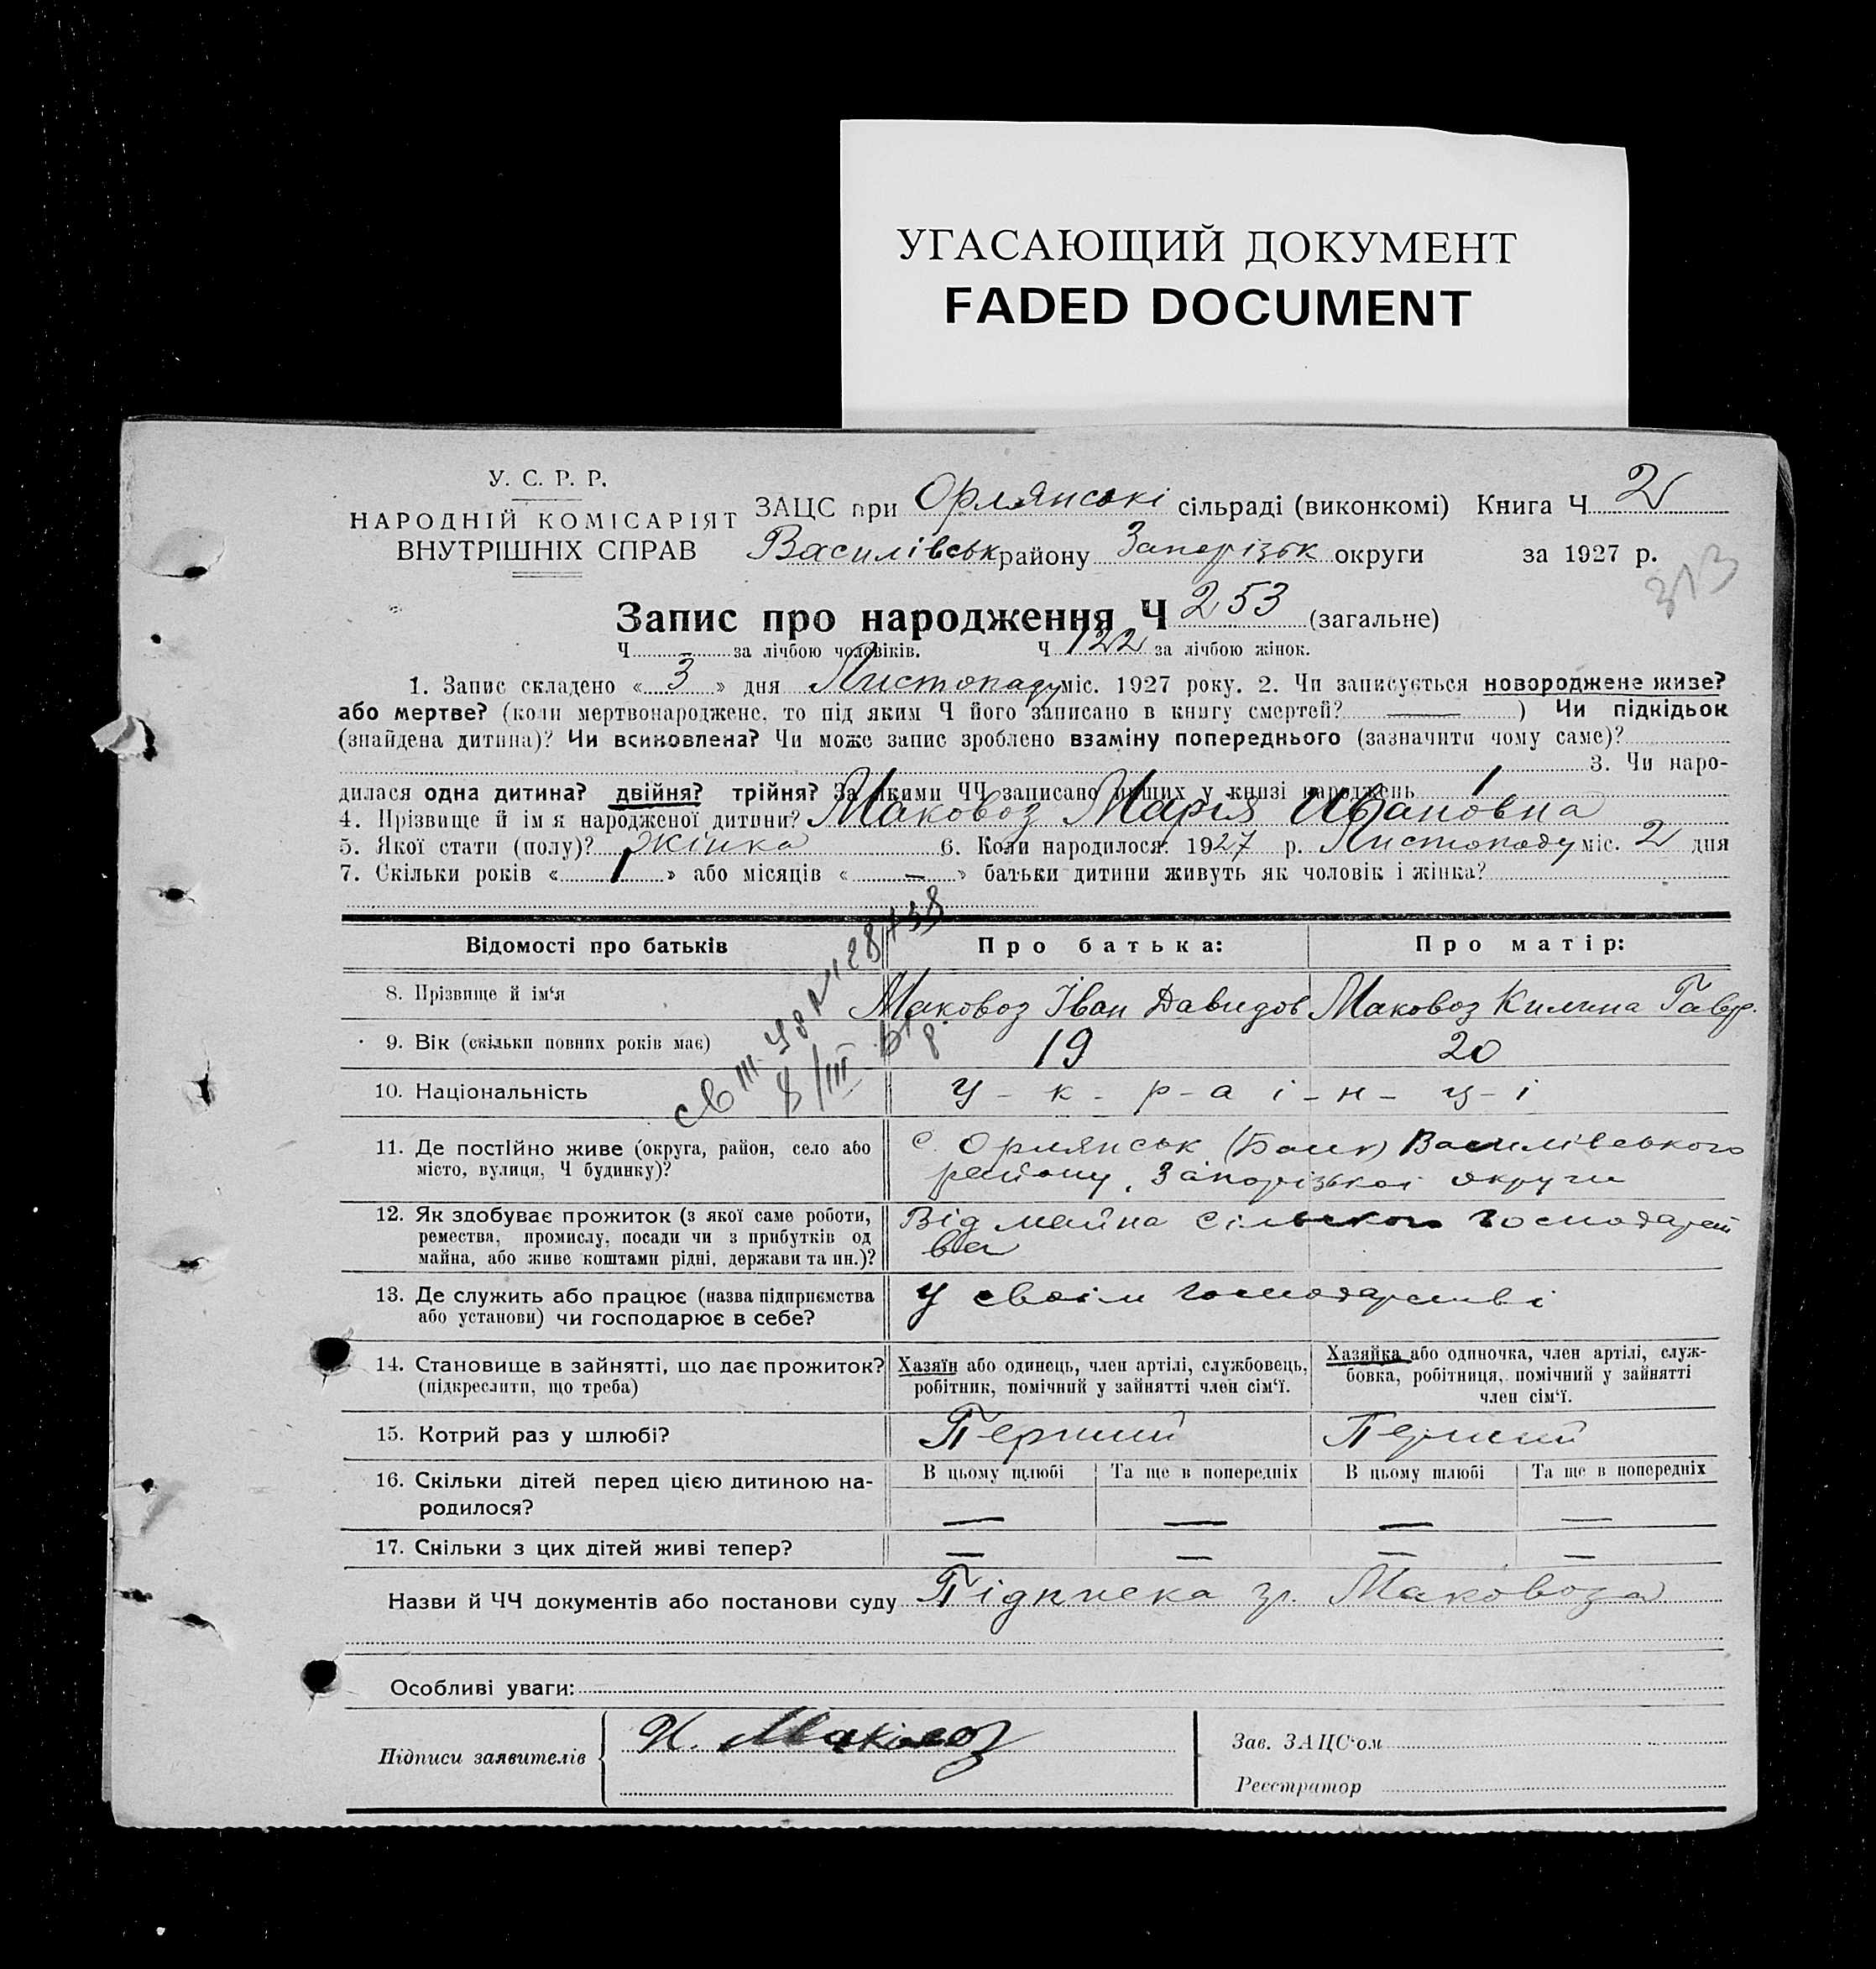 УГАСАЮЩИЙ ДОКУМЕНТ
FADED DOCUMENT
У. С. Р. Р.
НАРОДНІЙ КОМІСАРІЯТ
ВНУТРІШНІХ СПРАВ
ЗАЦС при Орлянські сільраді (виконкомі) Книга Ч 2
Василівськ району Запорізьк округи за 1927 р.
313
Запис про народження Ч 253 (загальне)
Ч за лічбою чоловіків. Ч 122 за лічбою жінок.
1. Запис складено « 3 » дня Листопаду міс. 1927 року. 2. Чи записується новороджене живе?
або мертве? (коли мертвонароджене, то під яким Ч його записано в книгу смертей? — ) Чи підкідьок
(знайдена дитина)? Чи всиновлена? Чи може запис зроблено взаміну попереднього (зазначити чому саме)?
3. Чи наро-
дилася одна дитина? двійня? трійня? За якими ЧЧ записано инших у книзі народжень
4. Прізвище й ім я народженої дитини? Маковоз Марія Ивановна
5. Якої стати (полу)? Жінка 6. Коли народилося: 1927 р. Листопаду міс. 2 дня
7. Скільки років « 1 » або місяців « — » батьки дитини живуть як чоловік і жінка?
Відомості про батьків Про батька: Про матір:
8. Прізвище й ім‘я Маковоз Іван Давидов Маковоз Килина Гавр.
9. Вік (скільки повних років має) 19 20
10. Національність У - к - р - а і - н - ц - і
11. Де постійно живе (округа, район, село або
місто, вулиця, Ч будинку)?
с. Орлянськ Василівського
району, Запорізької округи
12. Як здобуває прожиток (з якої саме роботи,
ремества, промислу, посади чи з прибутків од
майна, або живе коштами рідні, держави та ин.)?
Від майна сільського господарст
ва
13. Де служить або працює (назва підприємства
або установи) чи господарює в себе?
У своїм господарстві
14. Становище в зайнятті, що дає прожиток?
(підкреслити, що треба)
Хазяїн або одинець, член артілі, службовець,
робітник, помічний у зайнятті член сім‘ї.
Хазяйка або одиночка, член артілі, служ-
бовка, робітниця, помічний у зайнятті
член сім‘ї.
15. Котрий раз у шлюбі? Перший Перший
16. Скільки дітей перед цією дитиною на-
родилося?
В цьому шлюбі Та ще в попередніх В цьому шлюбі Та ще в попередніх
— — — —
17. Скільки з цих дітей живі тепер? — — — —
Назви й ЧЧ документів або постанови суду Підписка гр. Маковоза
Особливі уваги:
Підписи заявителів И. Маковоз
Зав. ЗАЦС‘ом
Реєстратор